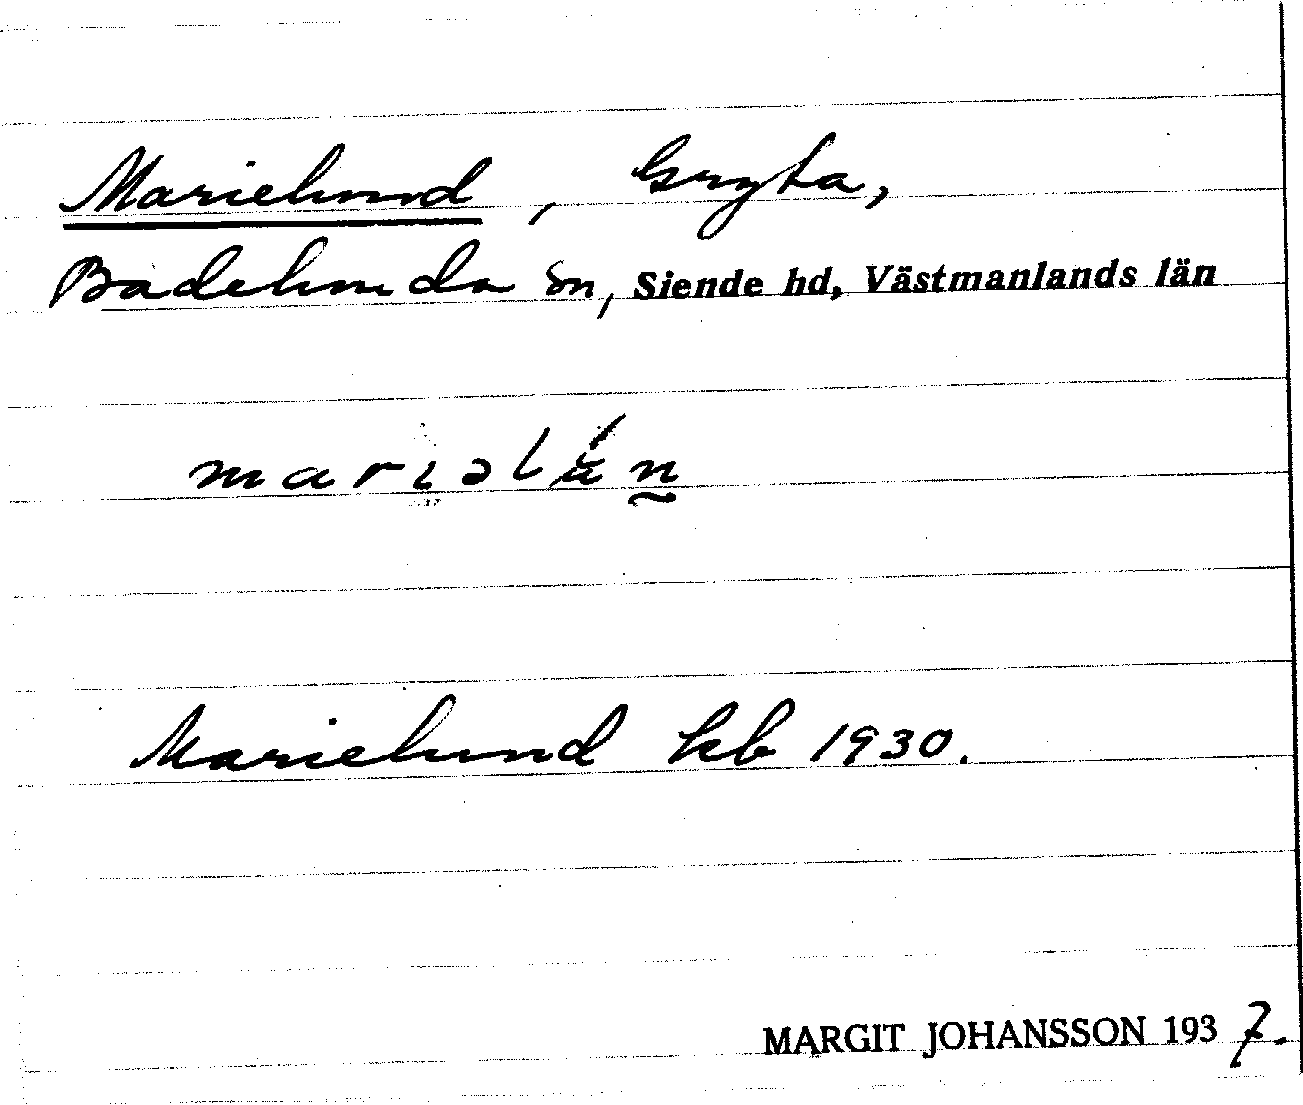 Marielund, Gryta,
Badelunda sn, Siende hd, Västmanlands län
mariəlún̰
Marielund kb 1930.
MARGIT JOHANSSON 1937.